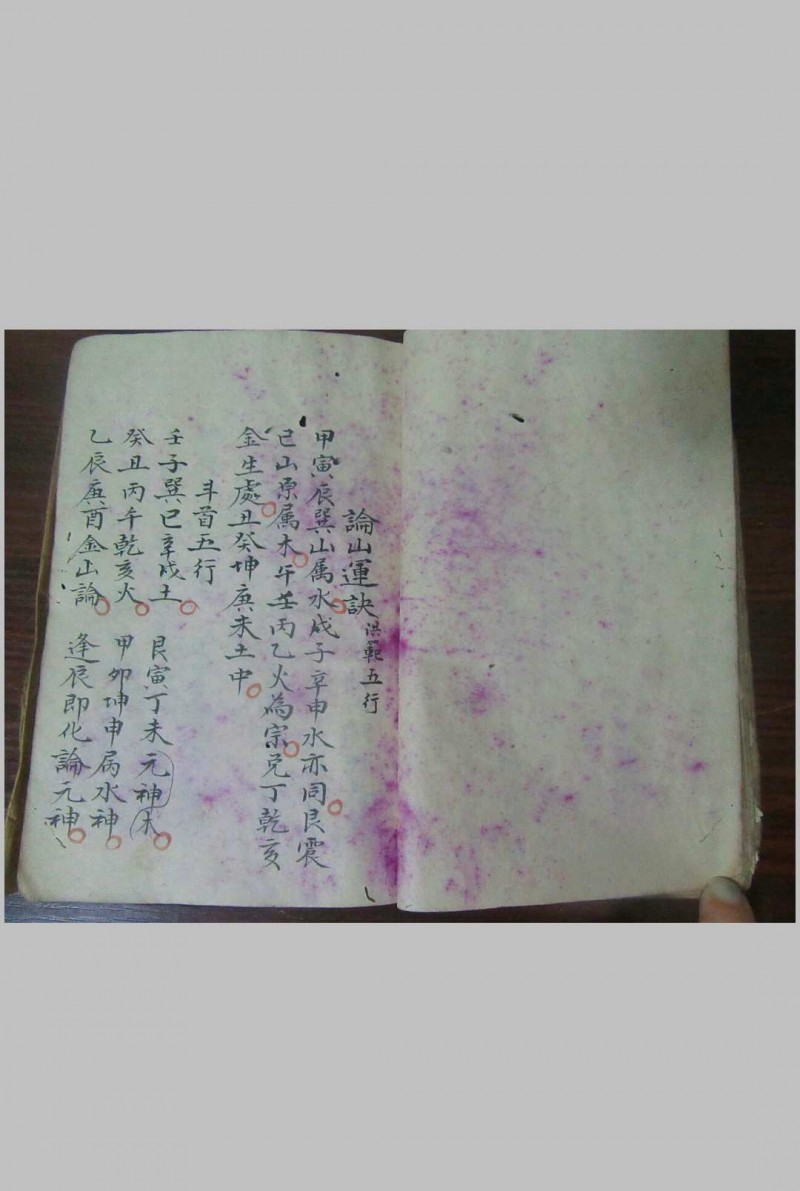 論山運訣 洪範五行
甲寅辰巽山属水戌子辛申水亦同艮震
巳山原属木午壬丙乙火為宗兌丁乾亥
金生處丑癸坤庚未土中
斗首五行
壬子巽巳辛戌土
艮寅丁未元神木
癸丑丙午乾亥火
甲卯坤申病水神
乙辰庚酉金山論
逢辰即化論元神